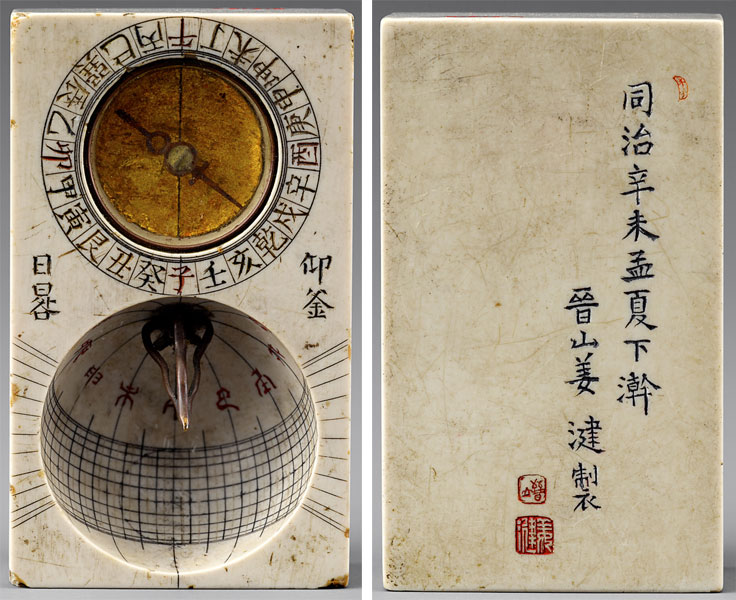 子癸丑艮寅甲卯乙辰巽巳丙午丁未坤申庚酉辛戌乾亥壬
仰釜
日晷
申未午巳辰
同治辛未孟夏下澣
晉山姜湕製
晉山
姜湕